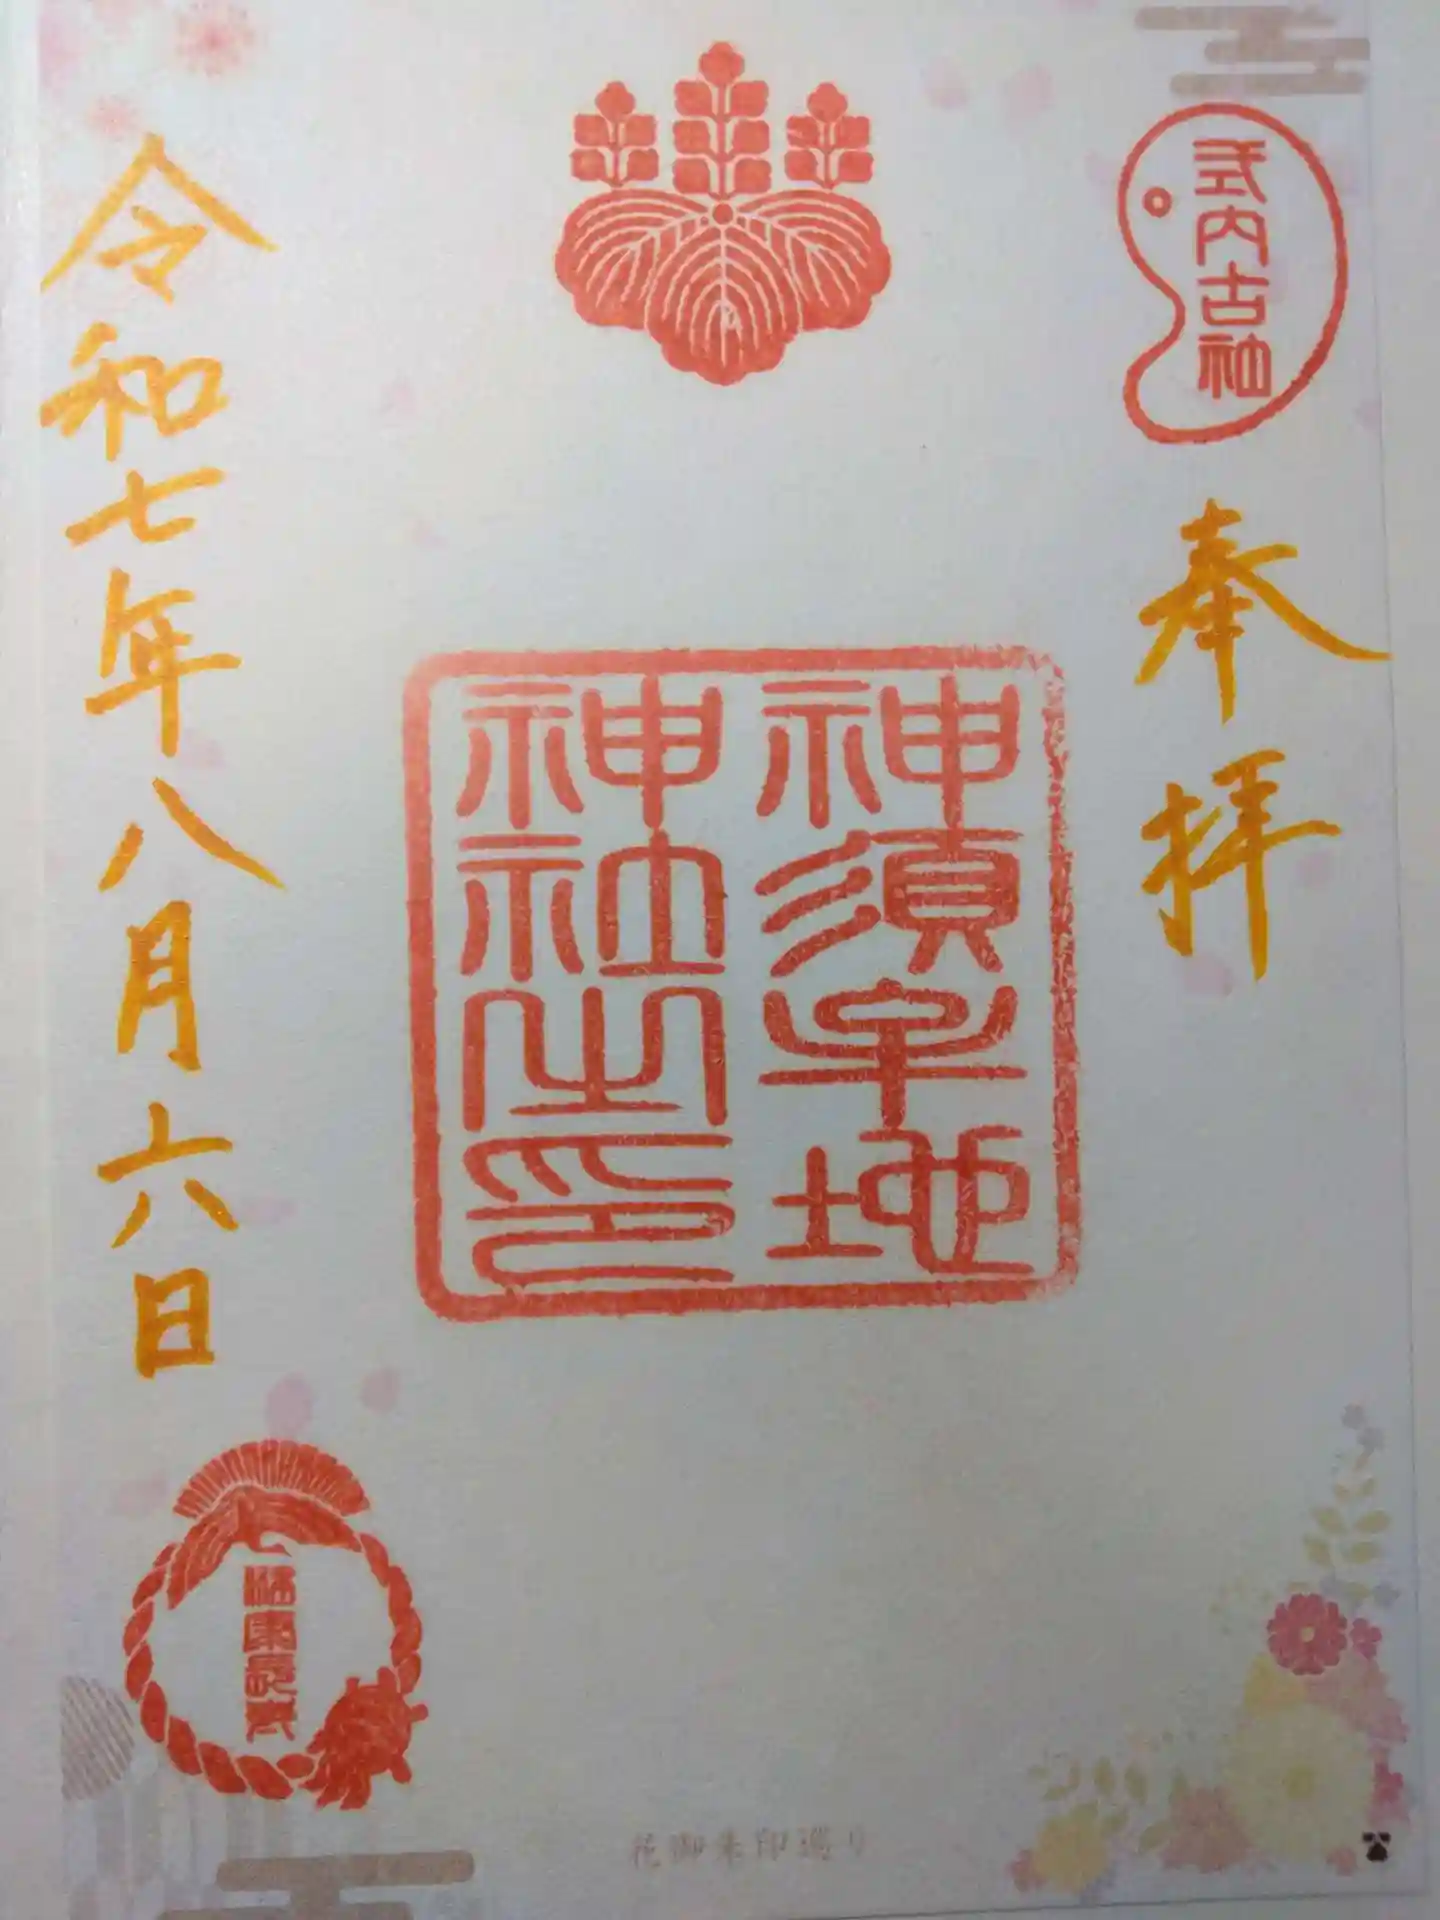 式内古社
奉拝
神須牟地
神社之印
令和七年八月六日
花御朱印巡り